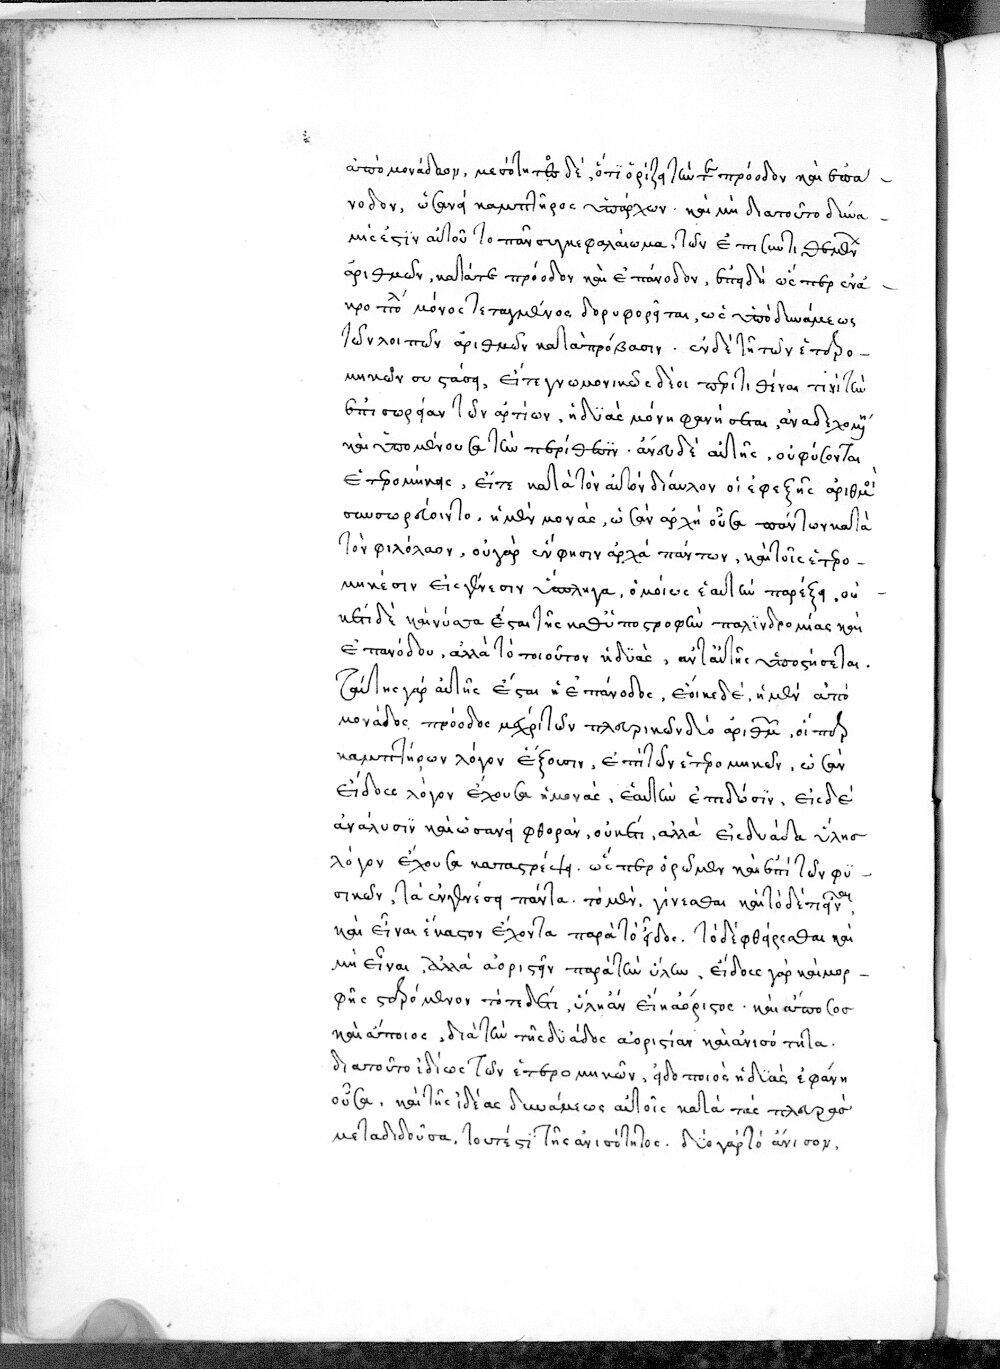 ἀπὸ μονάδων, μεσότητος δὲ, ὅτι ὁρίζει τὴν πρόοδον καὶ ἐπα
νοδον, ὡσανεὶ καμπτῆρος ὑπάρχων. καὶ μὴ διατοῦτο δυνά
μις ἐστὶν αὐτοῦ τὸ πᾶν συγκεφαλαίωμα, τῶν ἐπισυντιθεμένων
ἀριθμῶν, κατά τε πρόοδον καὶ ἐπάνοδον, ἐπειδὴ ὥσπερ ἐνά
κρο μόνος τεταγμένος δορυφορεῖται, ὡς ὑπὸ δυνάμεως
τῶν λοιπῶν ἀριθμῶν κατὰ πρόβασιν. ἐν δὲ τῇ τῶν ἑτερο
μηκῶν συστάσει, εἴτε γνωμονικῶς δέοι περιτιθέναι τινὶ τὴν
ἐπισωρείαν τῶν ἀρτίων, ἡ δυὰς μόνη φανήσεται, ἀναδεχομένη
καὶ ὑπομένουσα τὴν περίθεσιν. ἄνευ δὲ αὐτῆς, οὐ φύσονται
ἑτερομήκεις, εἴτε κατὰ τὸν αὐτὸν δίαυλον οἱ ἐφεξῆς ἀριθμοὶ
συσσωρεύοιντο, ἡ μὲν μονὰς, ὡσὰν ἀρχὴ οὖσα πάντων κατὰ
τὸν φιλόλαον, οὐ γὰρ ἕν φησιν ἀρχὰ πάντων, καὶ τοῖς ἑτερο
μήκεσιν εἰς γένεσιν ὕσπληγα, ὁμοίως ἑαυτὴν παρέξει, οὐ
κέτι δὲ καὶ νύσσα ἔσται τῆς καθ' ὑποστροφὴν παλινδρομίας καὶ
ἐπανόδου, ἀλλὰ τὸ τοιοῦτον ἡ δυὰς, ἀντ' αὐτῆς ὑποστήσεται.
Ταύτης γὰρ αὐτῆς ἔσται ἡ ἐπάνοδος, ἐῴκε δὲ, ἡ μὲν ἀπὸ
μονάδος πρόοδος μέχρι τῶν πλευρικῶν δύο ἀριθμῶν, οἵπερ
καμπτήρων λόγον ἕξουσιν, ἐπὶ τῶν ἑτερομηκῶν, ὡσὰν
εἴδους λόγον ἔχουσα ἡ μονὰς, ἑαυτὴν ἐπιδώσιν, εἰς δὲ
ἀνάλυσιν καὶ ὡσανεὶ φθορὰν, οὐκέτι, ἀλλὰ εἰς δυάδα ὕλης
λόγον ἔχουσα καταστρέψει. ὥσπερ ὁρῶμεν καὶ ἐπὶ τῶν φυ
σικῶν, τὰ ἐν γενέσει πάντα. τὸ μὲν, γίνεσθαι καὶ τόδε
καὶ εἶναι ἕκαστον ἔχοντα παρὰ τὸ εἶδος. τὸ δὲ φθείρεσθαι καὶ
μὴ εἶναι, ἀλλὰ ἀοριστεῖν παρὰ τὴν ὕλην, εἴδους γὰρ καὶ μορ
φῆς στερόμενον τότε δέτι, ὕλη ἂν εἴη ἀόριστος. καὶ ἄποσος
καὶ ἄποιος, διὰ τὴν τῆς δυάδος ἀοριστίαν καὶ ἀνισότητα.
διατοῦτο ἰδίως τῶν ἑτερομηκῶν, εἰδοποιὸς ἡ δυὰς ἐφάνη
οὖσα, καὶ τῆς ἰδέας δυνάμεως αὐτοῖς κατὰ τὰς πλευρὰς
μεταδιδοῦσα, τουτέστι τῆς ἀνισότητος. δύο γὰρ τὸ ἄνισον,